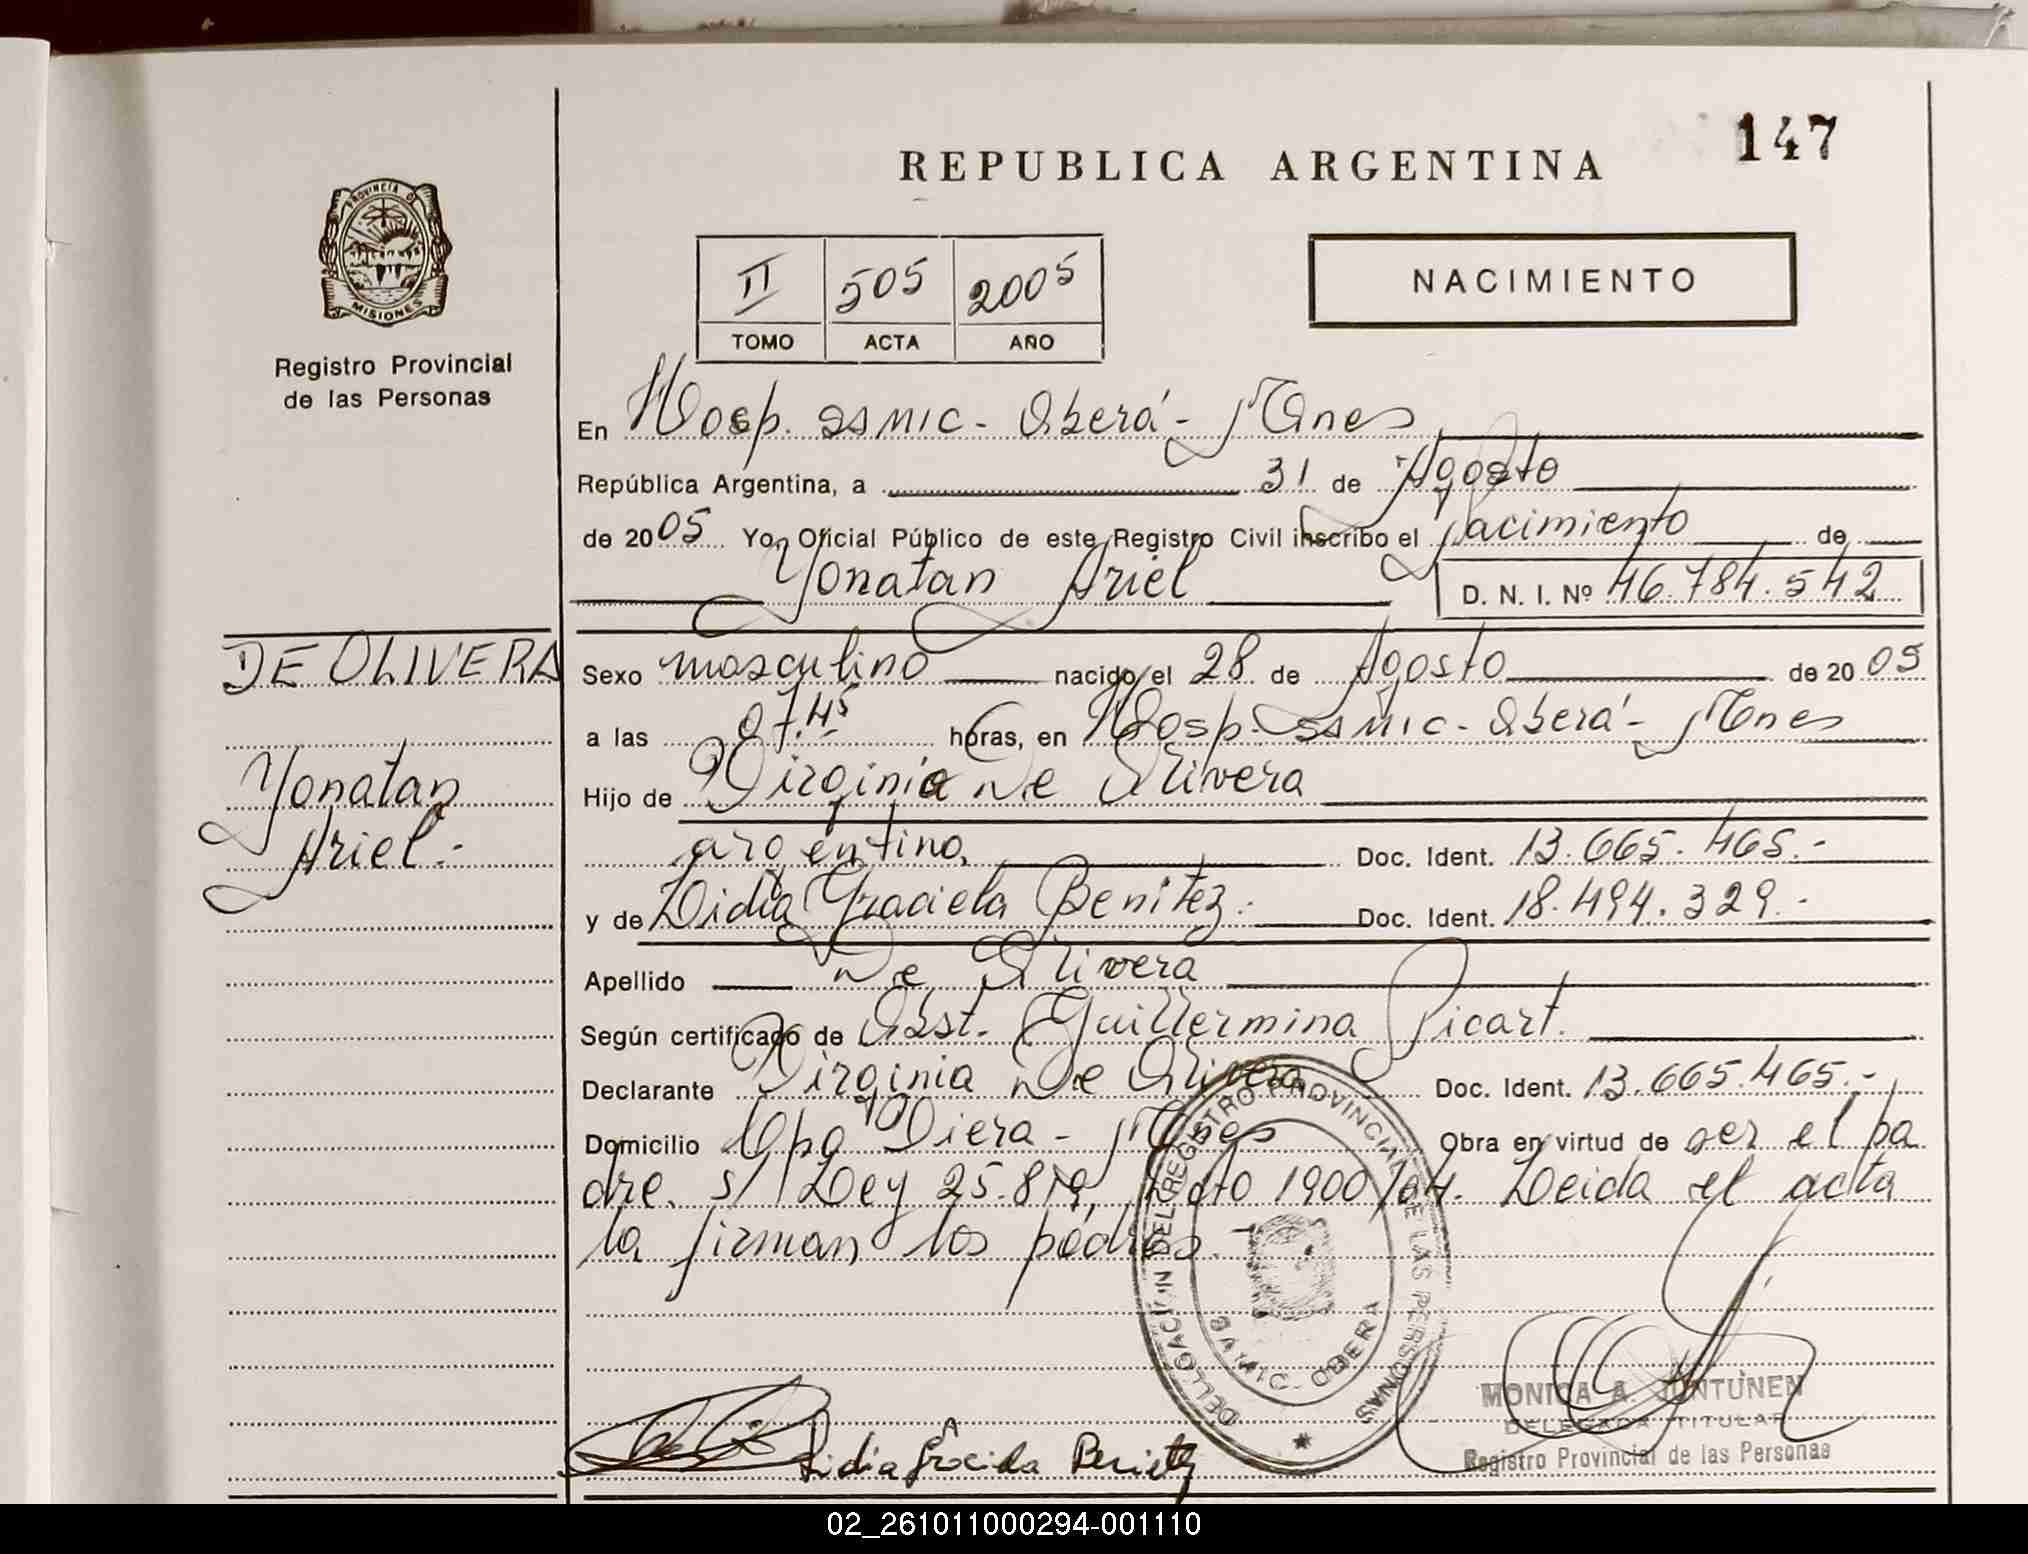 147
REPUBLICA ARGENTINA
PROVINCIA DE
MISIONES
Registro Provincial
de las Personas
II 505 2005
TOMO ACTA AÑO
NACIMIENTO
En Hosp. SSMIC - Oberá - Mnes
República Argentina, a 31 de Agosto
de 2005 Yo, Oficial Público de este Registro Civil inscribo el Nacimiento de
Yonatan Ariel D. N. I. Nº 46.784.542
DE OLIVERA
Yonatan
Ariel.-
Sexo masculino nacido el 28 de Agosto de 2005
a las 07.45 horas, en Hosp. SSMIC - Oberá - Mnes
Hijo de Virginio De Olivera
argentino. Doc. Ident. 13.665.465.-
y de Lidia Graciela Benitez.- Doc. Ident. 18.494.329.-
Apellido De Olivera
Según certificado de Obst. Guillermina Picart.
Declarante Virginio De Olivera Doc. Ident. 13.665.465.-
Domicilio Cpo Viera - Mnes Obra en virtud de ser el pa
dre. s/ Ley 25.819, Dcto 1900/04. Leida el acta
la firman los padres.-
DELEGACIÓN DEL REGISTRO PROVINCIAL DE LAS PERSONAS
SAMIC - OBERA
Lidia Graciela Benitez
MONICA A. JUNTUNEN
DELEGADA TITULAR
Registro Provincial de las Personas
02_261011000294-001110